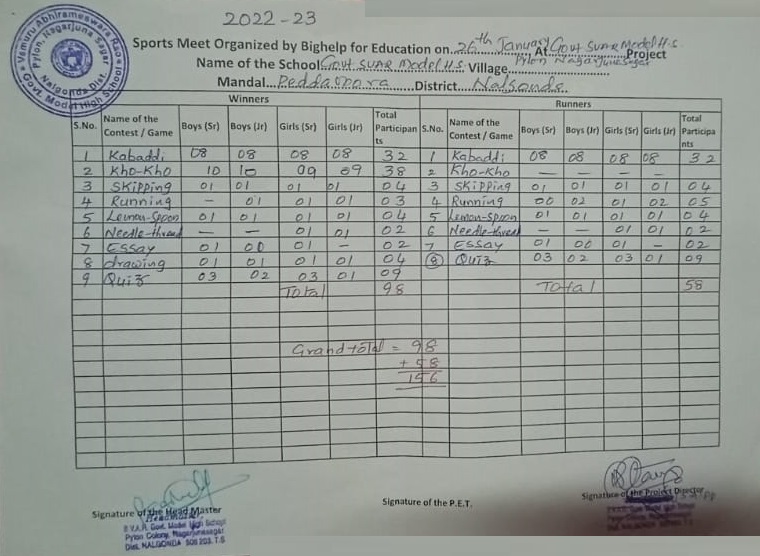 2022-23
Vamuru Abhirameswara Rao
Pylon, Nagarjuna Sagar
Nalgonda Dist.
Govt Model High School
Sports Meet Organized by Bighelp for Education on 26th January At Govt SVAR Model H.S Project
Name of the School Govt SVAR Model H.S. Village Pylon Nagarjuna Sagar
Mandal Peddavoora District Nalgonda
Winners Runners
S.No. Name of the Contest / Game Boys (Sr) Boys (Jr) Girls (Sr) Girls (Jr) Total Participants S.No. Name of the Contest / Game Boys (Sr) Boys (Jr) Girls (Sr) Girls (Jr) Total Participants
1 Kabaddi 08 08 08 08 32 1 Kabaddi 08 08 08 08 32
2 Kho-Kho 10 10 09 09 38 2 Kho-Kho — — — — —
3 Skipping 01 01 01 01 04 3 Skipping 01 01 01 01 04
4 Running - 01 01 01 03 4 Running 00 02 01 02 05
5 Lemon-Spoon 01 01 01 01 04 5 Lemon-Spoon 01 01 01 01 04
6 Needle-thread — — 01 01 02 6 Needle-thread — — 01 01 02
7 Essay 01 00 01 - 02 7 Essay 01 00 01 - 02
8 drawing 01 01 01 01 04 8 Quiz 03 02 03 01 09
9 Quiz 03 02 03 01 09
Total 98 Total 58
Grand total = 98
+ 58
156
Signature of the Head Master Signature of the P.E.T. Signature of the Project Director
Headmaster
Govt. Model High School
Pylon Colony, Nagarjunasagar
Dist. NALGONDA 508 202. T.S